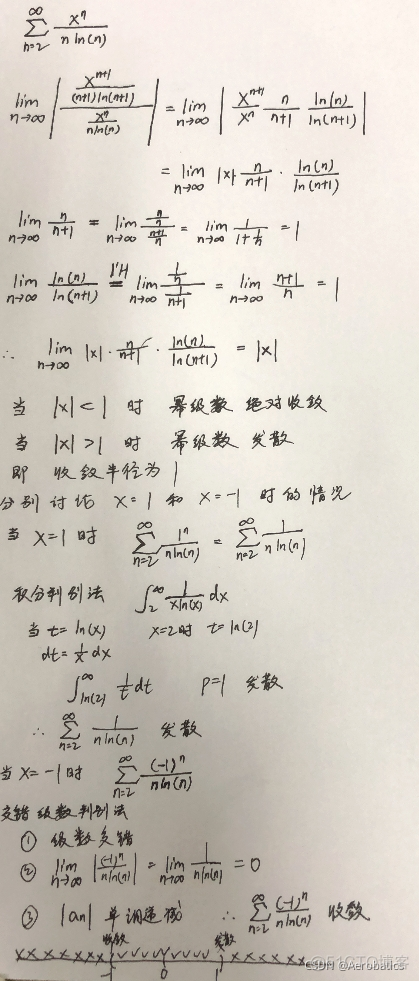 ∞∑n=2 x^n / (n ln(n))
lim n→∞ | (x^(n+1) / ((n+1) ln(n+1))) / (x^n / (n ln(n))) | = lim n→∞ | x^(n+1)/x^n · n/(n+1) · ln(n)/ln(n+1) |
= lim n→∞ |x| · n/(n+1) · ln(n)/ln(n+1)
lim n→∞ n/(n+1) = lim n→∞ (n/n)/((n+1)/n) = lim n→∞ 1/(1+1/n) = 1
lim n→∞ ln(n)/ln(n+1) =(l'H) lim n→∞ (1/n)/(1/(n+1)) = lim n→∞ (n+1)/n = 1
∴ lim n→∞ |x| · n/(n+1) · ln(n)/ln(n+1) = |x|
当 |x| < 1 时 幂级数 绝对收敛
当 |x| > 1 时 幂级数 发散
即 收敛半径为 1
分别讨论 x = 1 和 x = -1 时的情况
当 x = 1 时 ∞∑n=2 1^n/(n ln(n)) = ∞∑n=2 1/(n ln(n))
积分判别法 ∫2^∞ 1/(x ln(x)) dx
当 t = ln(x) x=2时 t = ln(2)
dt = 1/x dx
∫ln(2)^∞ 1/t dt P=1 发散
∴ ∞∑n=2 1/(n ln(n)) 发散
当 x = -1 时 ∞∑n=2 (-1)^n/(n ln(n))
交错级数判别法
① 级数交错
② lim n→∞ |(-1)^n/(n ln(n))| = lim n→∞ 1/(n ln(n)) = 0
③ |an| 单调递减 ∴ ∞∑n=2 (-1)^n/(n ln(n)) 收敛
收敛 发散
-1 0 1
CSDN @Aerobatics